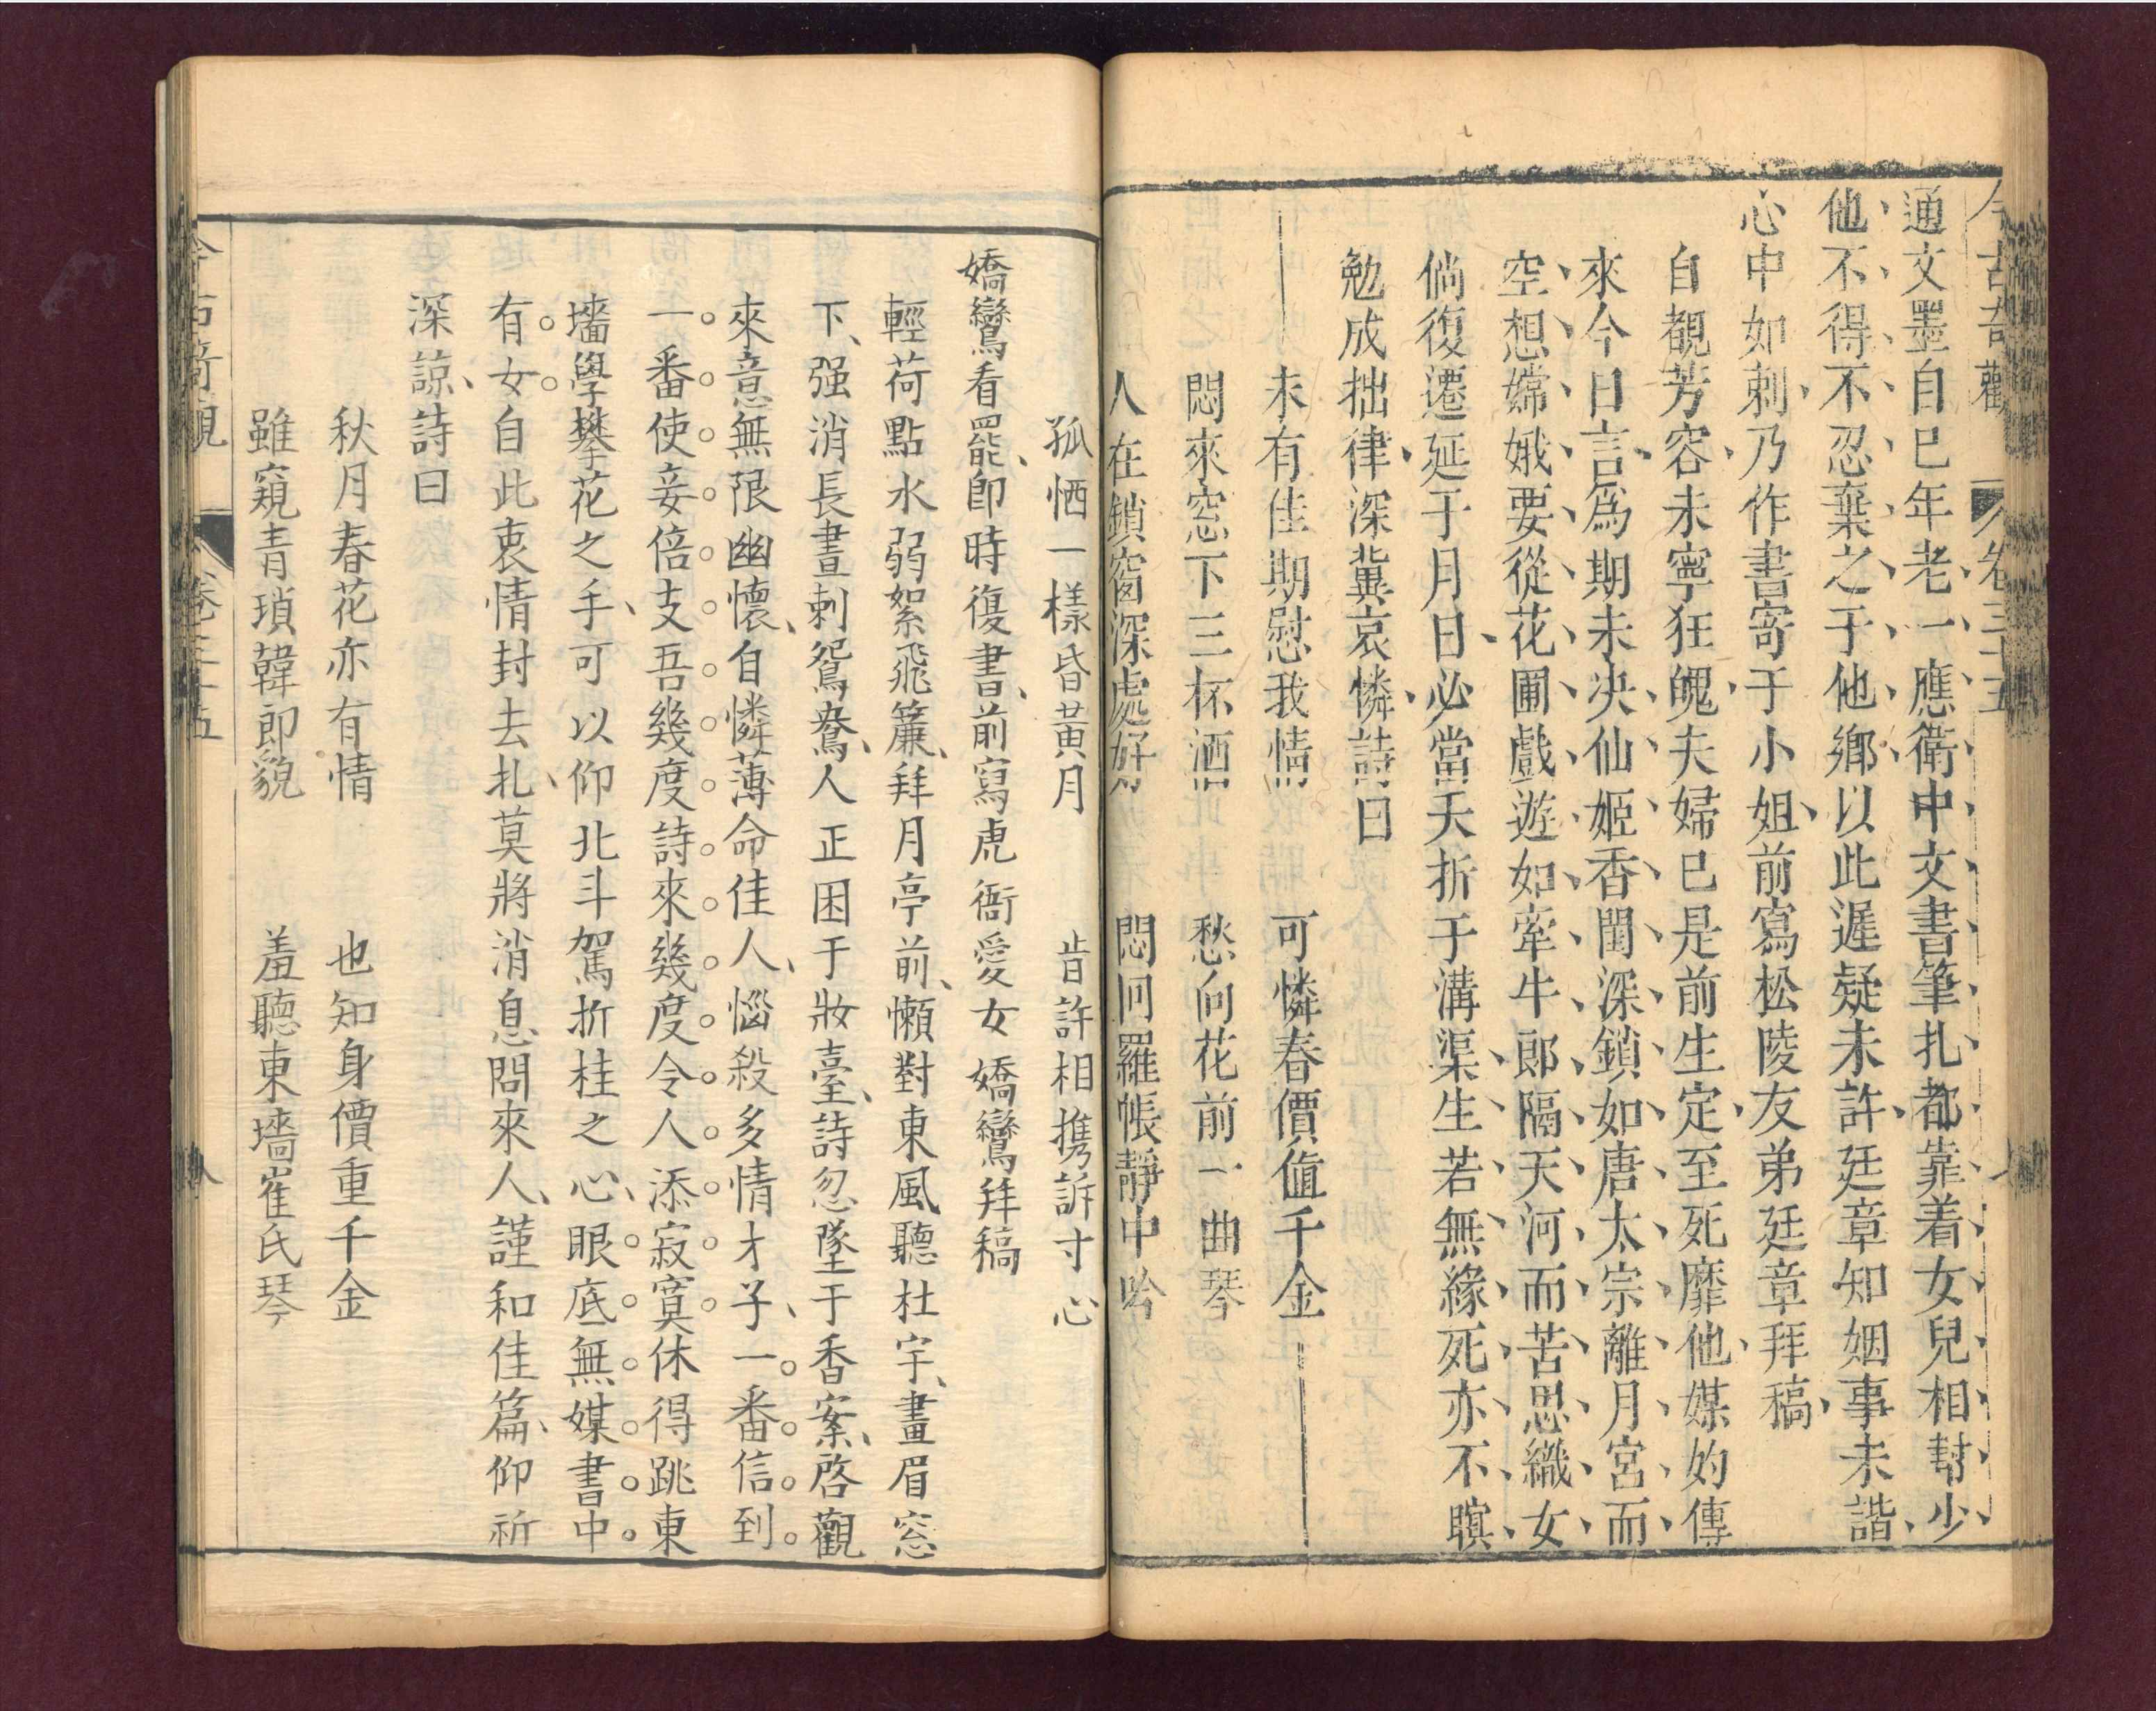 今古奇觀 卷三十五
通文墨自巳年老一應衛中文書筆扎都靠着女兒相幇少
他不得不忍棄之于他鄉以此遲疑未許廷章知姻事未諧
心中如刺乃作書寄于小姐前寫松陵友弟廷章拜稿
自覩芳容未寧狂魄夫婦巳是前生定至死靡他媒妁傳
來今日言爲期未决仙姬香閨深鎖如唐太宗離月宮而
空想嫦娥要從花圃戲遊如牽牛郎隔天河而苦思織女
倘復遷延于月日必當夭折于溝渠生若無緣死亦不瞑
勉成拙律深冀哀憐詩曰
未有佳期慰我情 可憐春價值千金
悶來窓下三杯酒 愁向花前一曲琴
人在鎖窗深處好 悶回羅帳靜中吟
孤恓一樣昏黃月 肯許相携訴寸心
嬌鸞看罷卽時復書前寫虎衙愛女嬌鸞拜稿
輕荷點水弱絮飛簾拜月亭前懶對東風聽杜宇畫眉窓
下强消長晝刺鴛鴦人正困于妝臺詩忽墜于香案啓觀
來意無限幽懷自憐薄命佳人惱殺多情才子一番信到
一番使妾倍支吾幾度詩來幾度令人添寂寞休得跳東
墻學攀花之手可以仰北斗駕折桂之心眼底無媒書中
有女自此衷情封去扎莫將消息問來人謹和佳篇仰祈
深諒詩曰
秋月春花亦有情 也知身價重千金
雖窺青瑣韓郎貌 羞聽東墻崔氏琴
今古奇觀 卷三十五 八